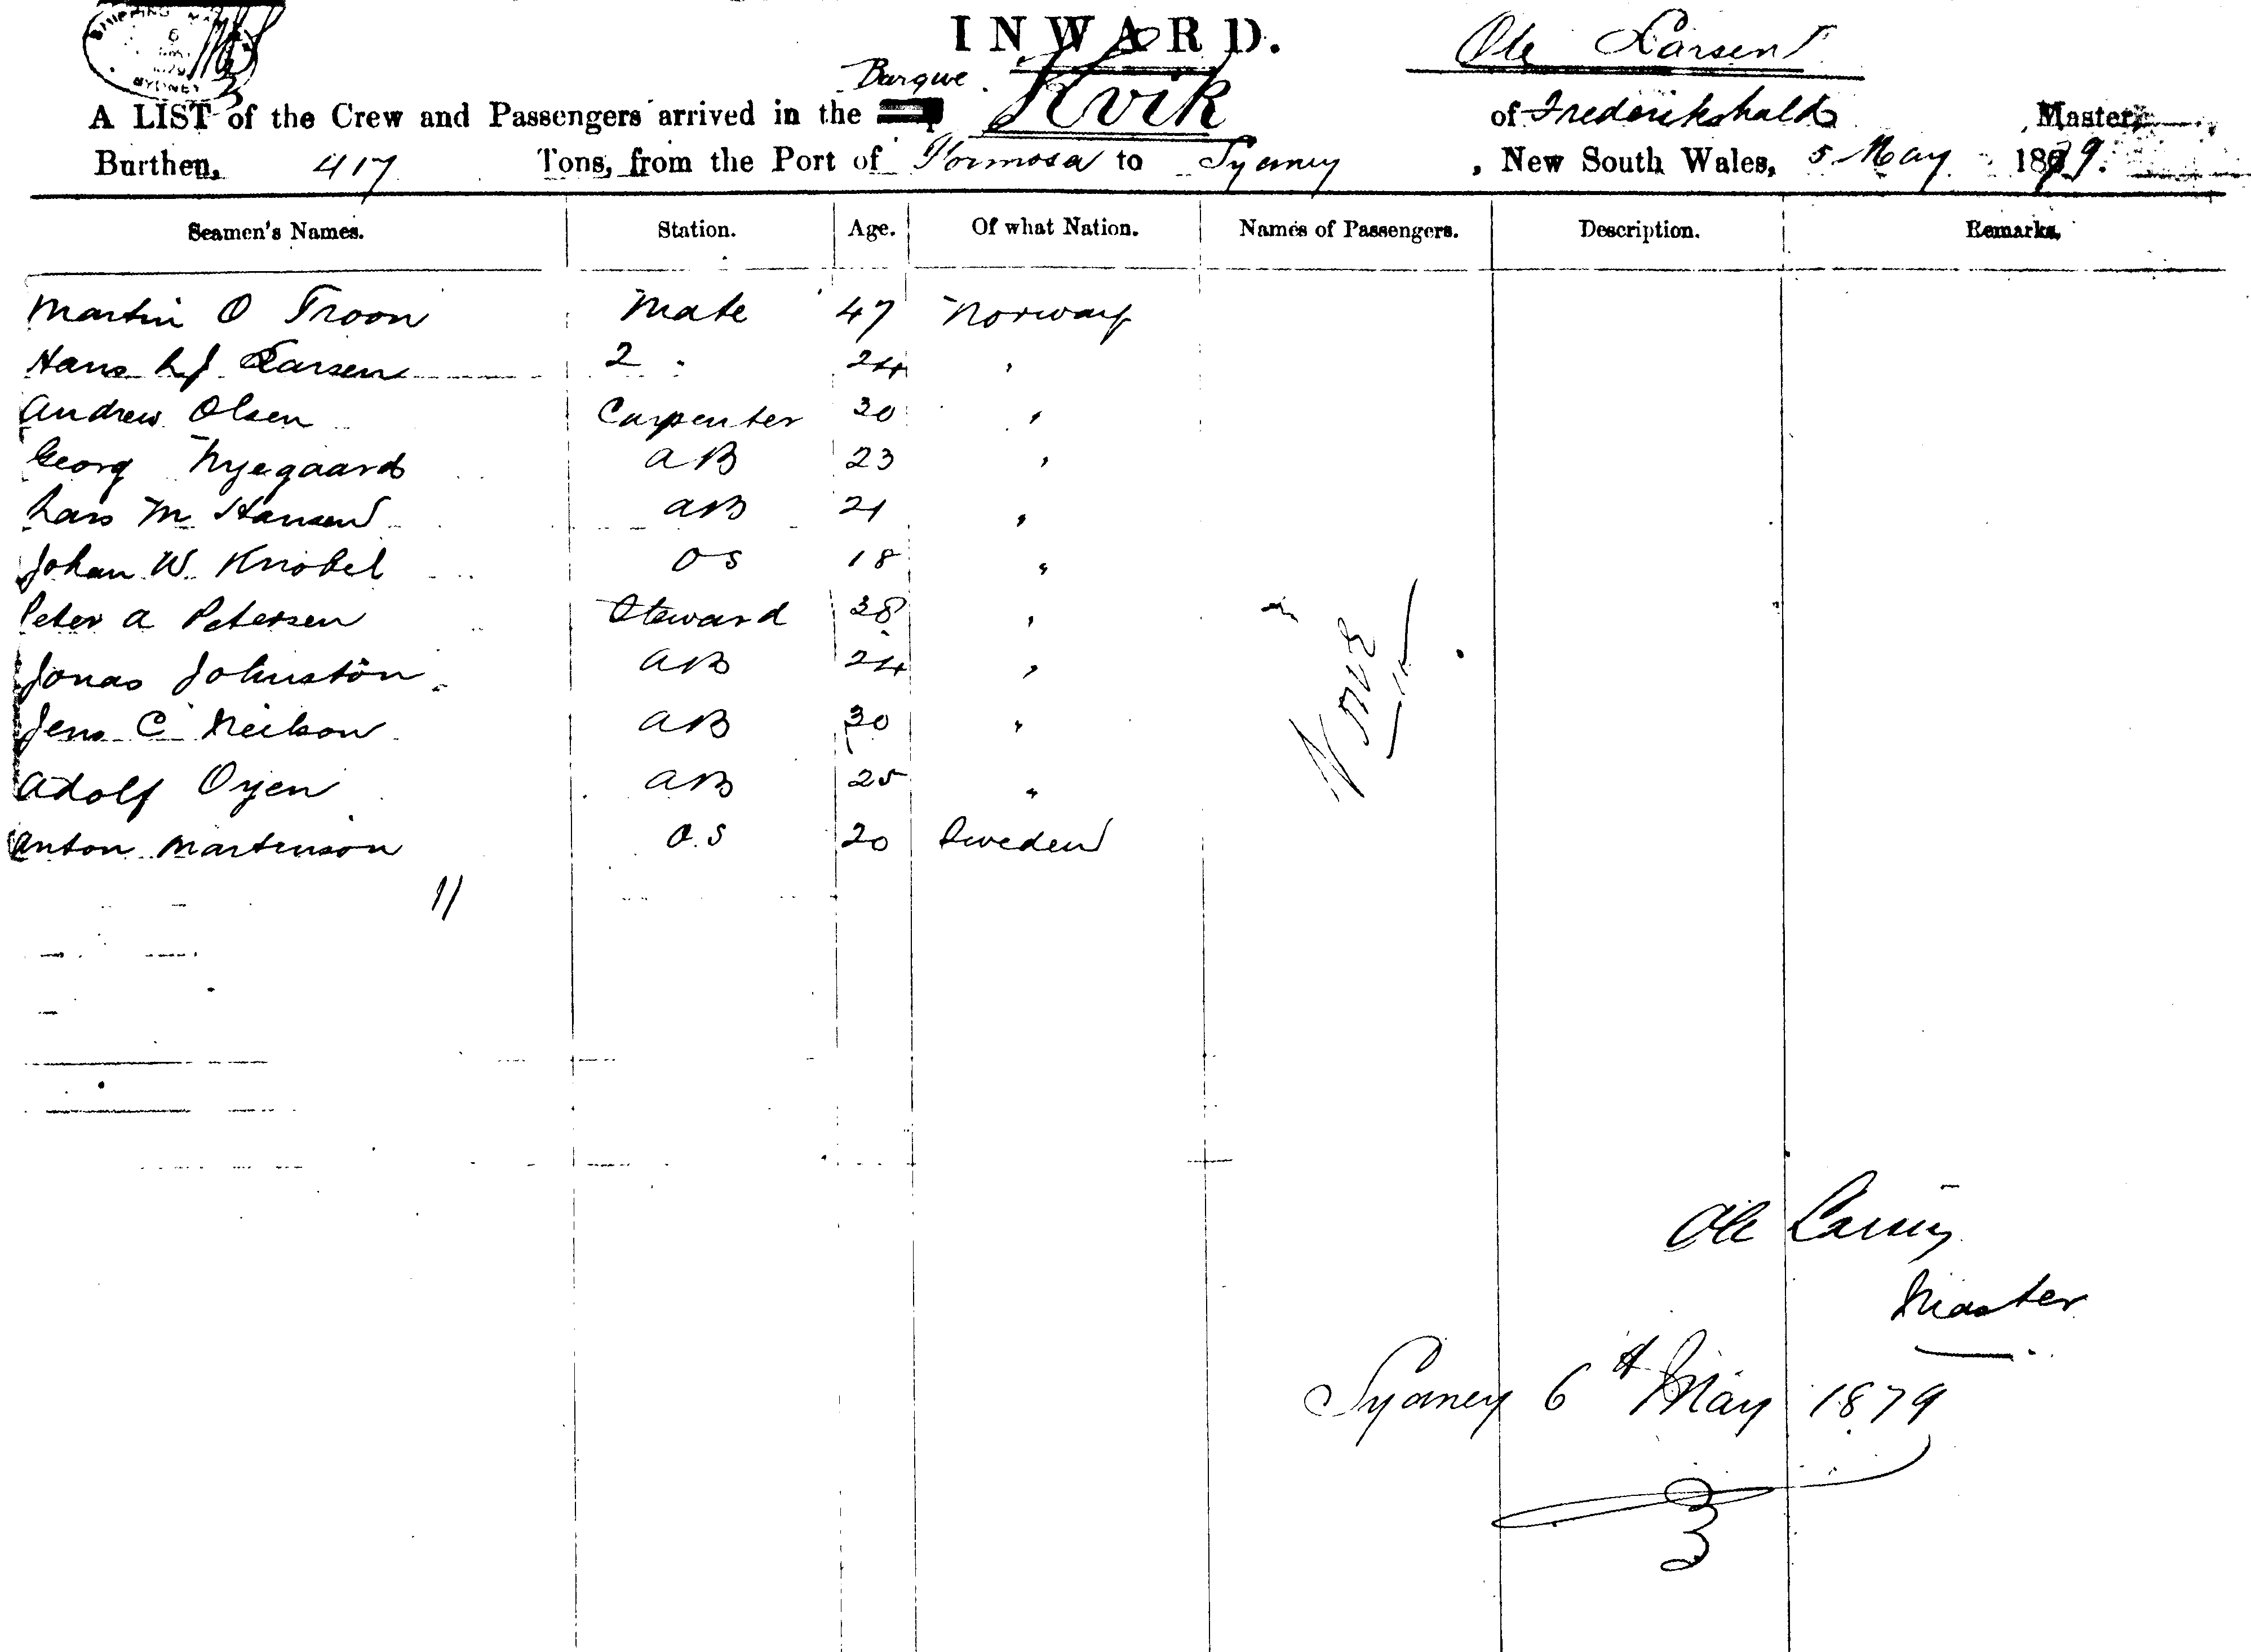 SHIPPING MA
6
SYDNEY
INWARD.
Ole Larsen
Barque
A LIST of the Crew and Passengers arrived in the Kvik of Frederikshald Master,
Burthen, 417 Tons, from the Port of Formosa to Sydney, New South Wales, 5 May 1879.
Seamen's Names. Station. Age. Of what Nation. Names of Passengers. Description. Remarks.
Martin O Troon Mate 47 Norway
Hans Larsen 2 " 24 "
Andrew Olsen Carpenter 30 "
Georg Nyegaard AB 23 "
Lars M Hansen AB 21 "
Johan W Knobel OS 18 "
Peter A Petersen Steward 38 "
Jonas Johnston AB 24 "
Jens C Neilson AB 30 "
Adolf Oyen AB 25 "
Anton Martinson O.S 20 Sweden
11
None
Ole Larsen
Master
Sydney 6th May 1879